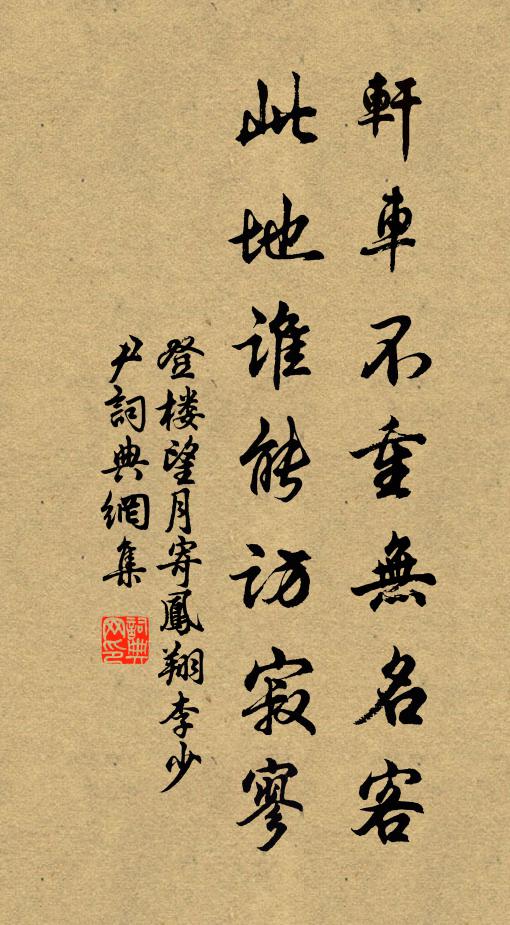 軒車不重無名客
此地誰能訪寂寥
登楼望月寄鳳翔李少
尹詞典網集
詞典
网印